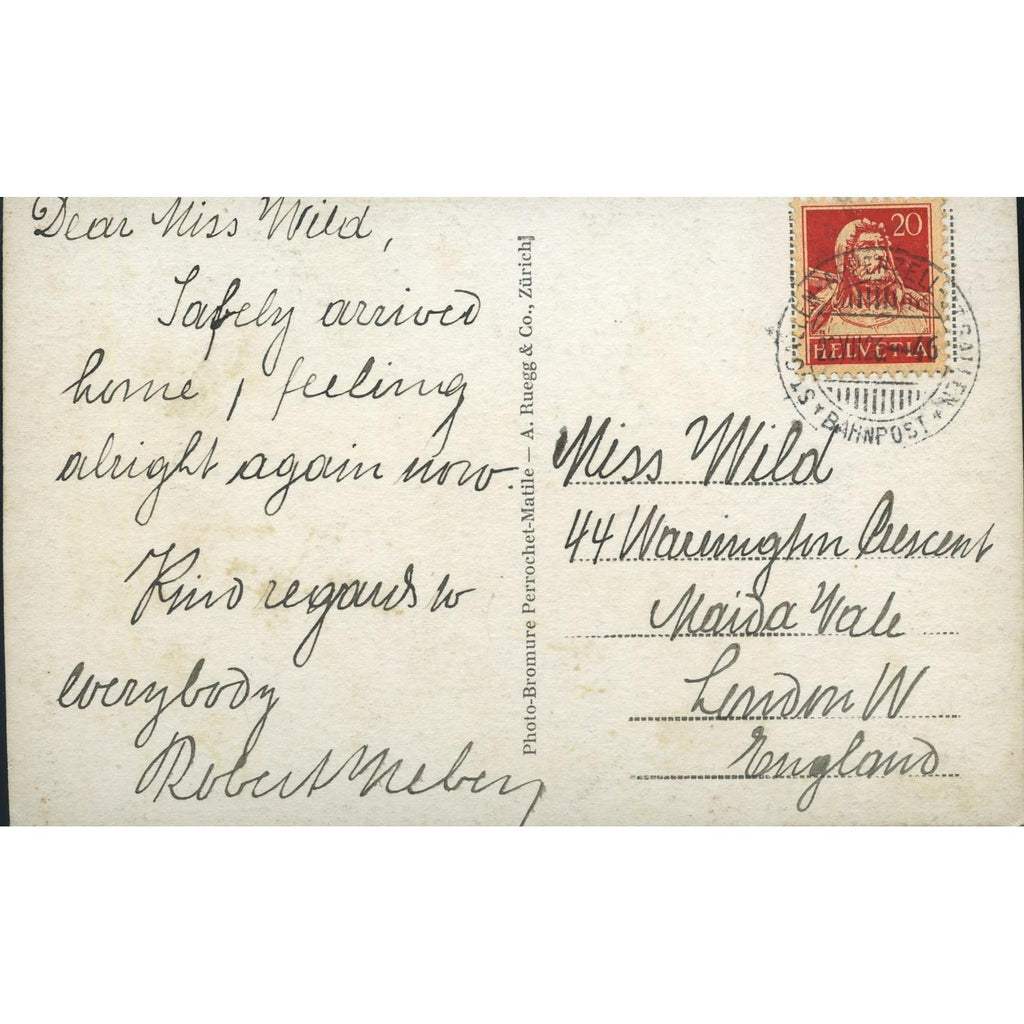 Dear Miss Wild,
Safely arrived
home, feeling
alright again now.
Kind regards to
everybody
Robert
Photo-Bromure Perrochet-Matile — A. Ruegg & Co., Zürich
20
HELVETIA
ST. GALLEN
BAHNPOST
Miss Wild
44 Warrington Crescent
Maida Vale
London W
England